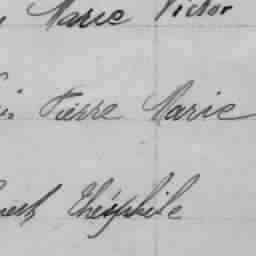 Marie Victor
Pierre Marie
Théophile